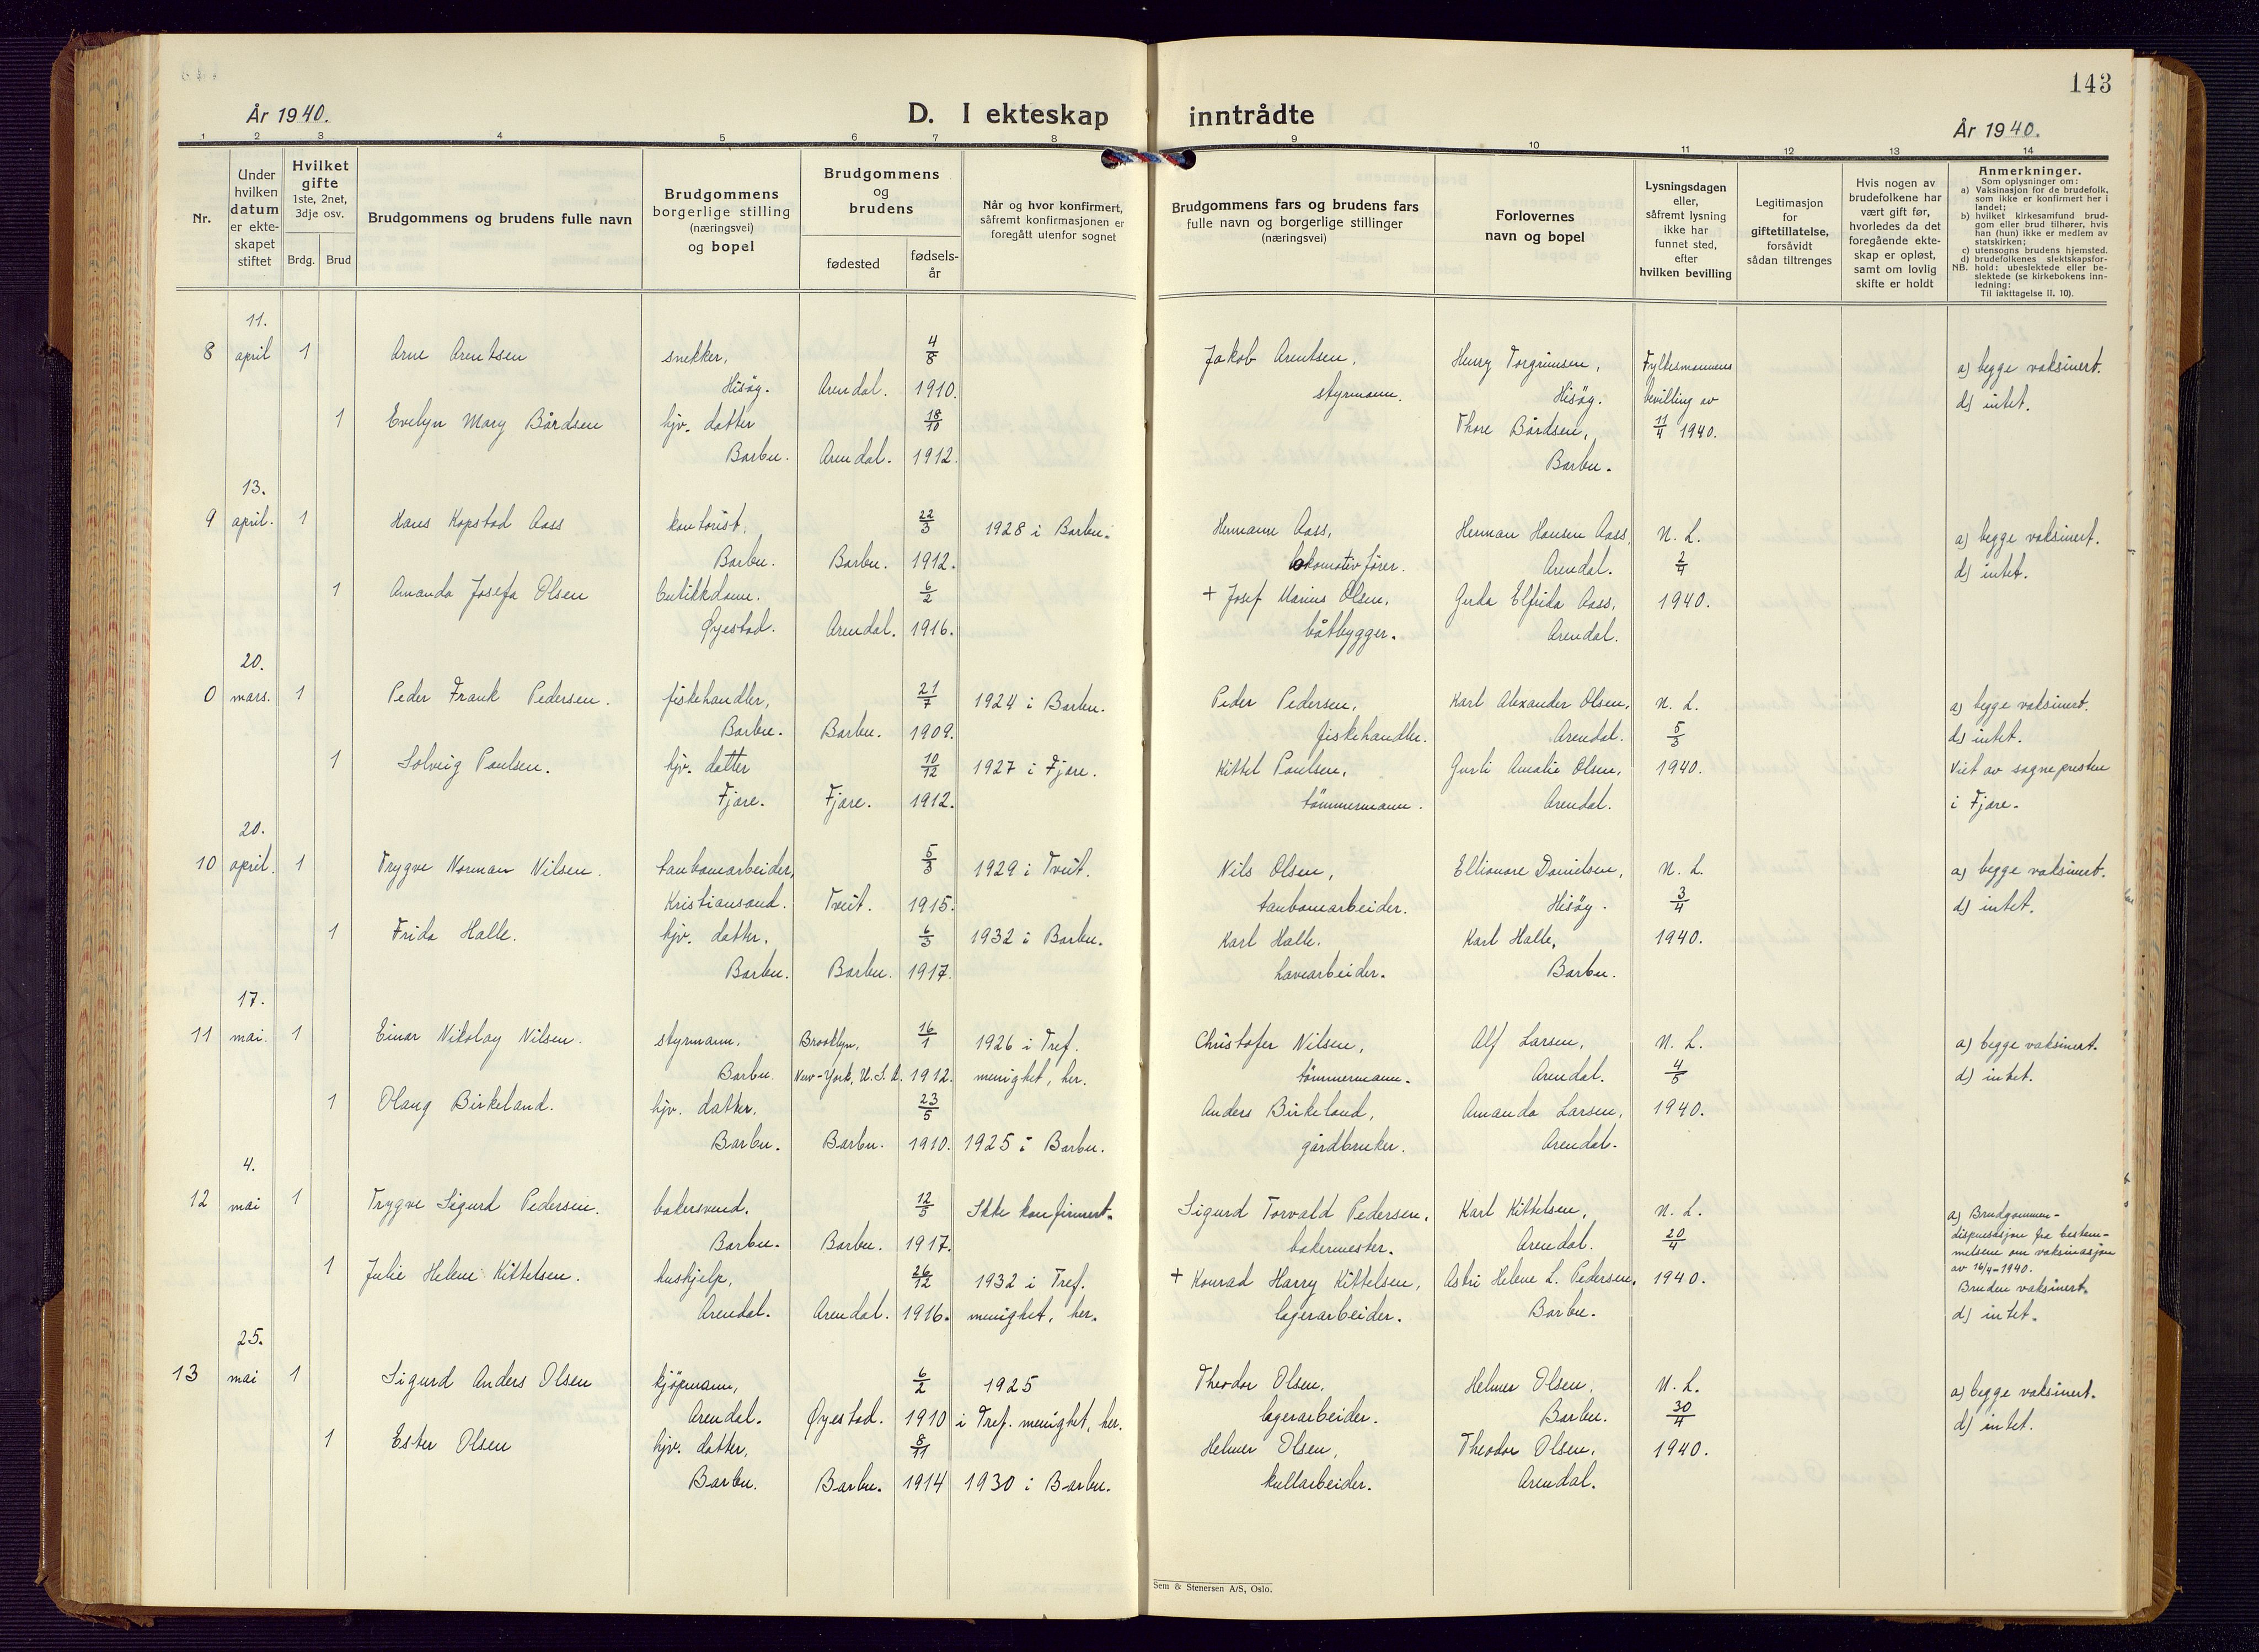 143
År 1940.
D. I ekteskap inntrådte
År 1940.
1 2 3 4 5 6 7 8 9 10 11 12 13 14
Nr.
Under hvilken datum er ekte-skapet stiftet
Hvilket gifte 1ste, 2net, 3dje osv.
Brdg. Brud
Brudgommens og brudens fulle navn
Brudgommens borgerlige stilling (næringsvei) og bopel
Brudgommens og brudens
fødested
fødsels-år
Når og hvor konfirmert, såfremt konfirmasjonen er foregått utenfor sognet
Brudgommens fars og brudens fars fulle navn og borgerlige stillinger (næringsvei)
Forlovernes navn og bopel
Lysningsdagen eller, såfremt lysning ikke har funnet sted, efter hvilken bevilling
Legitimasjon for giftetillatelse, forsåvidt sådan tiltrenges
Hvis nogen av brudefolkene har vært gift før, hvorledes da det foregående ekte-skap er opløst, samt om lovlig skifte er holdt
Anmerkninger.
Som oplysninger om:
a) Vaksinasjon for de brudefolk, som ikke er konfirmert her i landet;
b) hvilket kirkesamfund brud-gom eller brud tilhører, hvis han (hun) ikke er medlem av statskirken;
c) utensogns brudens hjemsted.
d) brudefolkenes slektskapsfor-
NB. hold: ubeslektede eller be-slektede (se kirkebokens inn-ledning:
Til iakttagelse II. 10).
11.
8 april 1 Arne Arentsen snekker, 4/8 Jakob Arentsen, Henry Torgrimsen, Fylkesmannens a) begge vaksinert.
Hisöy. Arendal. 1910. styrmann. Hisöy. bevilling av d) intet.
1 Evelyn Mary Bårdsen hjv. datter 18/10 Thore Bårdsen, 11/4 1940.
Barbu. Arendal. 1912. Barbu.
13.
9 april. 1 Hans Kopstad Aass kontorist. 22/3 1928 i Barbu. Hermann Aass, Herman Hansen Aass, N. L. a) begge vaksinert.
Barbu. Barbu. 1912. lokomotivfører. Arendal. 2/4 d) intet.
1 Amanda Josefa Olsen butikkdame. 6/2 + Josef Marius Olsen, Gerda Elfrida Aass, 1940.
Øyestad. Arendal. 1916. båtbygger. Arendal.
20.
0 mars. 1 Peder Frank Pedersen. fiskehandler, 21/7 1924 i Barbu. Peder Pedersen, Karl Alexander Olsen, N. L. a) begge vaksinert.
Barbu. Barbu. 1909. fiskehandler. Arendal. 5/3 d) intet.
1 Solveig Paulsen. hjv. datter 10/12 1927 i Fjære. Kittel Paulsen, Gurli Amalie Olsen, 1940. Viet av sognepresten
Fjære. Fjære. 1912. tömmermann. Arendal. i Fjære.
20.
10 april. 1 Trygve Norman Nilsen. taubanearbeider, 5/3 1929 i Tveit. Nils Olsen, Ellionore Danielsen, N. L. a) begge vaksinert.
Kristiansand. Tveit. 1915. taubanearbeider. Hisöy. 3/4 d) intet.
1 Frida Halle. hjv. datter. 6/3 1932 i Barbu. Karl Halle. Karl Halle, 1940.
Barbu. Barbu. 1917. havearbeider. Barbu.
17.
11 mai. 1 Einar Nikolay Nilsen. styrmann. Brooklyn, 16/1 1926 i Tref. Christofer Nilsen, Alf Larsen, N. L. a) begge vaksinert.
Barbu. New-York, U. S. A. 1912. menighet, her. tömmermann. Arendal. 4/5 d) intet.
1 Olaug Birkeland. hjv. datter. 23/5 Anders Birkeland, Amanda Larsen, 1940.
Barbu. Barbu. 1910. 1925 i Barbu. gårdbruker. Arendal.
4.
12 mai 1 Trygve Sigurd Pedersen. bakersvend. 12/5 Ikke konfirmert. Sigurd Torvald Pedersen, Karl Kittelsen, N. L. a) Brudgommen-
Barbu. Barbu. 1917. bakermester. Arendal. 20/4 dispensasjon fra bestem-
melsene om vaksinasjon
1 Julie Helene Kittelsen. hushjelp, 26/12 1932 i Tref. + Konrad Harry Kittelsen, Astri Helene L. Pedersen, 1940. av 16/4-1940.
Bruden vaksinert.
Arendal. Arendal. 1916. menighet, her. lagerarbeider. Barbu. d) intet.
25.
13 mai 1 Sigurd Anders Olsen kjöpmann, 6/2 1925 Theodor Olsen. Helmer Olsen. N. L. a) begge vaksinert.
Arendal. Øyestad. 1910 i Tref. menighet, her. lagerarbeider. Barbu. 30/4 d) intet.
1 Ester Olsen hjv. datter, 8/11 Helmer Olsen, Theodor Olsen, 1940.
Barbu. Barbu. 1914 1930 i Barbu. kullarbeider. Arendal.
Sem & Stenersen A/S, Oslo.